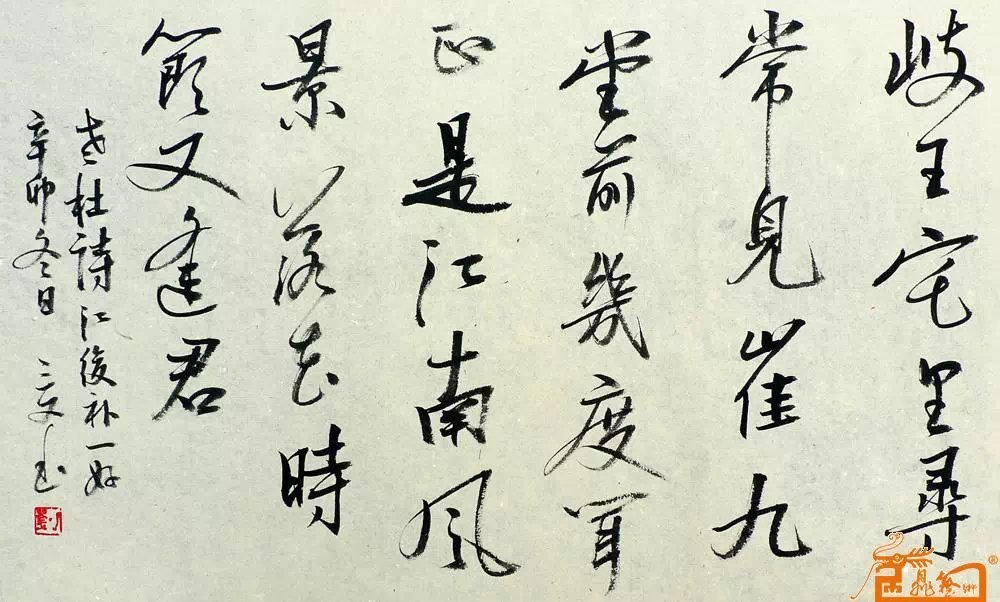 岐王宅里尋
常見崔九
堂前幾度聞
正是江南風
景落花時
節又逢君
老杜詩江後补一好
辛卯冬日